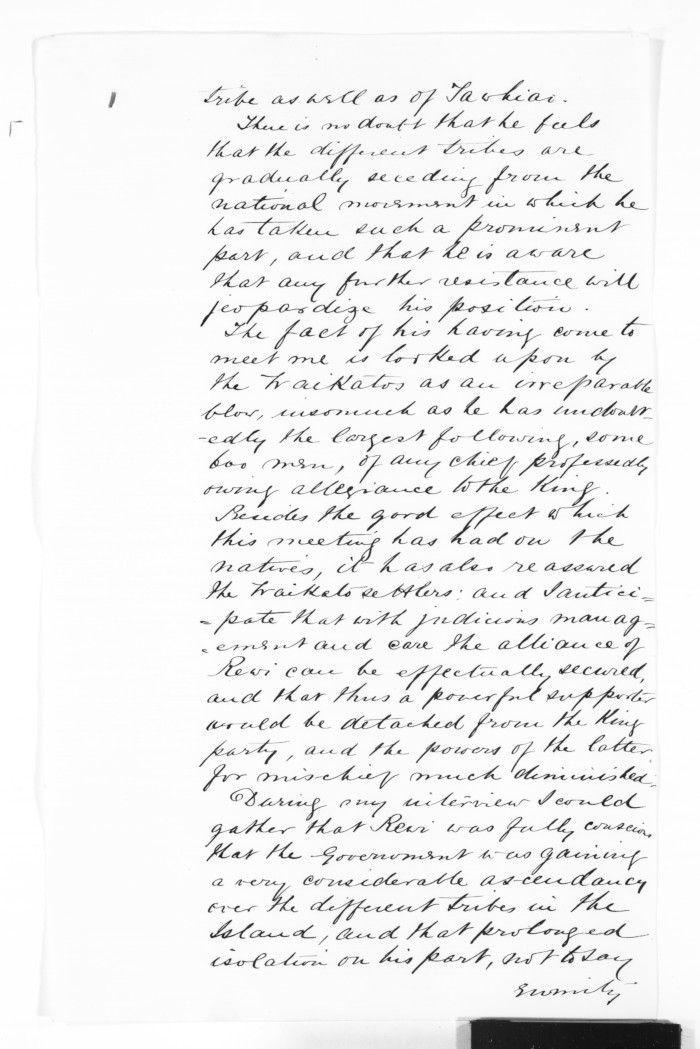 tribe as well as of Tawhiao.
There is no doubt that he feels
that the different tribes are
gradually seceding from the
national movement in which he
has taken such a prominent
part, and that he is aware
that any further resistance will
jeopardize his position.
The fact of his having come to
meet me is looked upon by
the Waikatos as an irreparable
blow, insomuch as he has undoubt-
-edly the largest following, some
600 men, of any chief professedly
owing allegiance to the King.
Besides the good effect which
this meeting has had on the
natives, it has also reassured
the Waikato settlers: and I antici=
=pate that with judicious manag=
=ement and care the alliance of
Rewi can be effectually secured,
and that thus a powerful supporter
would be detached from the King
party, and the powers of the latter
for mischief much diminished.
During my interview I could
gather that Rewi was fully conscious
that the Government was gaining
a very considerable ascendancy
over the different tribes in the
Island, and that prolonged
isolation on his part, not to say
enmity